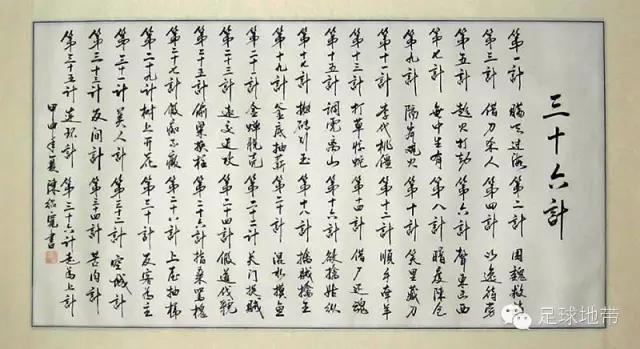 三十六計
第一計 瞒天过海 第二計 围魏救赵
第三計 借刀杀人 第四計 以逸待劳
第五計 趁火打劫 第六計 声东击西
第七計 无中生有 第八計 暗度陈仓
第九計 隔岸观火 第十計 笑里藏刀
第十一計 李代桃僵 第十二計 顺手牵羊
第十三計 打草惊蛇 第十四計 借尸还魂
第十五計 调虎离山 第十六計 欲擒姑纵
第十七計 抛砖引玉 第十八計 擒贼擒王
第十九計 釜底抽薪 第二十計 混水摸鱼
第二十一計 金蝉脱壳 第二十二計 关门捉贼
第二十三計 远交近攻 第二十四計 假道伐虢
第二十五計 偷梁换柱 第二十六計 指桑骂槐
第二十七計 假痴不癫 第二十八計 上屋抽梯
第二十九計 树上开花 第三十計 反客为主
第三十一計 美人計 第三十二計 空城計
第三十三計 反间計 第三十四計 苦肉計
第三十五計 连环計 第三十六計 走为上計
甲申年夏 陈绍宽書
足球地带